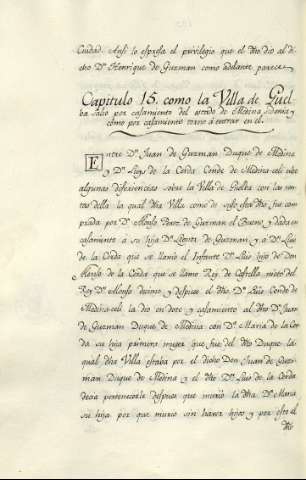 Ciudad. Ansi lo espresa el privilegio que el Rey dio al di-
cho Dn. Henrique de Guzman como adelante parece
Capitulo 15. como la Villa de Guel-
ba salio por casamiento del estado de Medina Sidonia y
como por casamiento torno á entrar en el.
Entre Dn. Juan de Guzman Duque de Medina
y Dn. Luys de la Cerda Conde de Medina celi ubo
algunas diferiencias sobre la Villa de Guelba con las ren-
tas della la qual dha Villa como de suso esta dho, fue com-
prada por Dn. Alonso Perez de Guzman el Bueno, y dada en
casamiento á su hija Da. Leonor de Guzman y á Dn. Luis
de la Cerda que se llamo el Infante Dn. Luis hijo de Don
Alonso de la Cerda que se llamo Rey de Castilla nieto del
Rey Dn. Alonso decimo y despues el dho. Dn. Luis Conde de
Medina celi la dio en dote y casamiento al dho Dn. Juan
de Guzman Duque de Medina con Da. Maria de la Cer-
da su hija primera muger que fue del dho Duque la
qual dha Villa estaba por el dicho Don Juan de Guz-
man Duque de Medina y el dho Dn. Luis de la Cerda
decia pertenecerla despues que murio la dha Da. Maria
su hija por que murio sin haver hijos y por esto el
dho